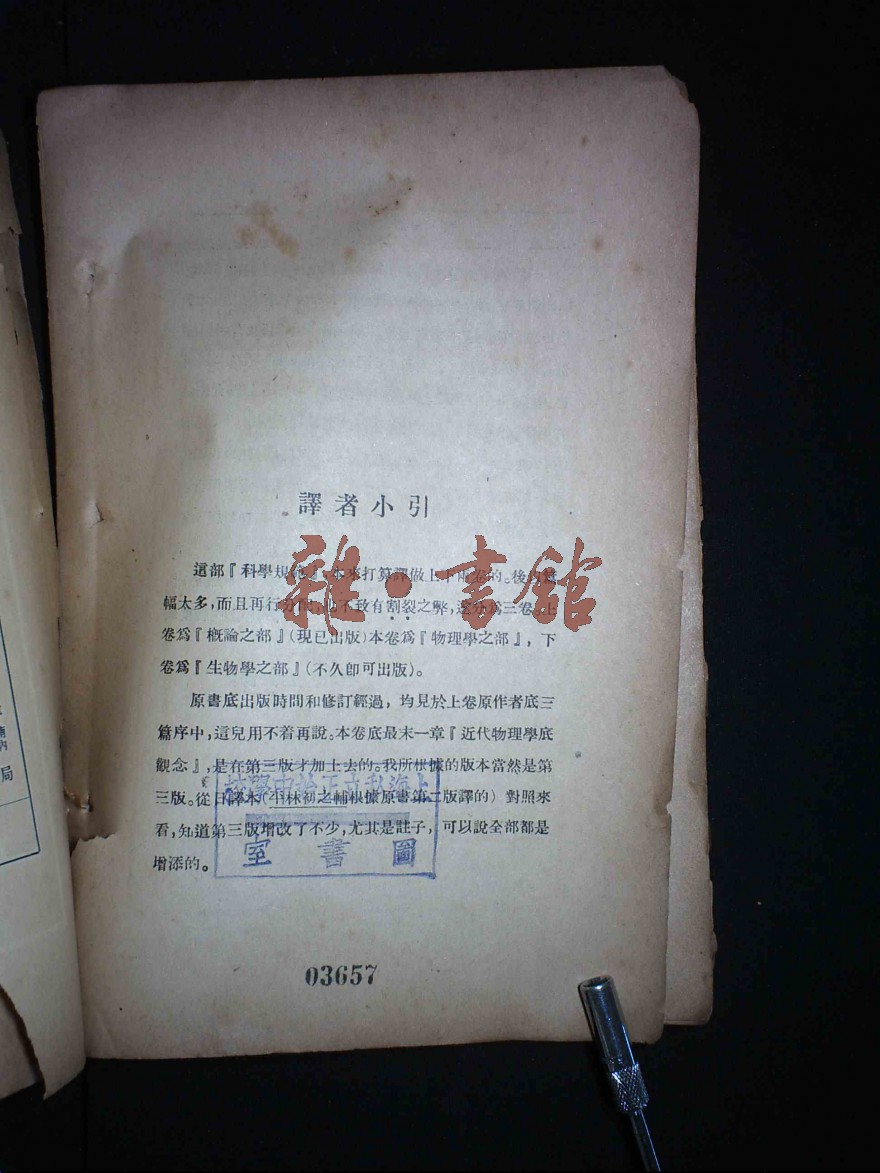 譯者小引
雜·書館
這部『科學規範』,本來打算譯做上下兩卷的。後因篇
幅太多,而且再行分配,也不致有割裂之弊,遂分爲三卷。上
卷爲『概論之部』(現已出版)本卷爲『物理學之部』,下
卷爲『生物學之部』(不久卽可出版)。
原書底出版時間和修訂經過,均見於上卷原作者底三
篇序中,這兒用不着再說。本卷底最末一章『近代物理學底
觀念』,是在第三版才加上去的。我所根據的版本當然是第
三版。從日譯本(平林初之輔根據原書第二版譯的)對照來
看,知道第三版增改了不少,尤其是註子,可以說全部都是
增添的。
上海私立正始中學校
圖書室
03657
局